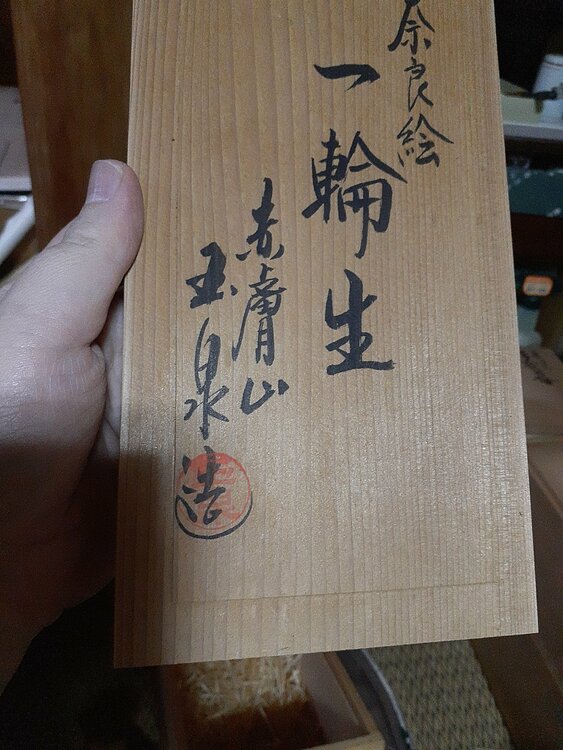 奈良絵
一輪生
赤膚山
玉泉造